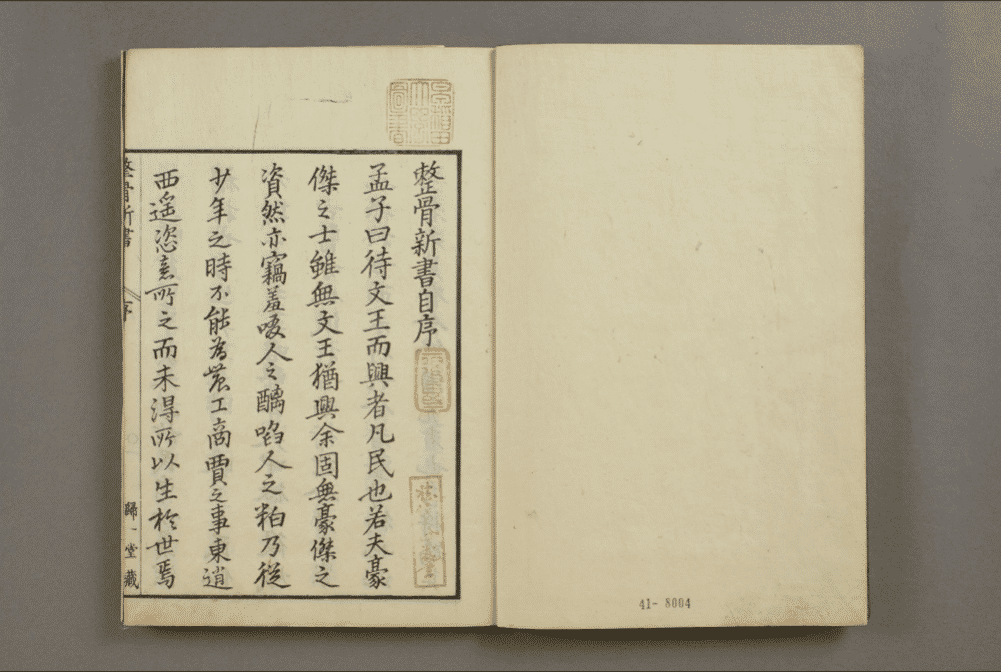 整骨新書自序
孟子曰待文王而興者凡民也若夫豪
傑之士雖無文王猶興余固無豪傑之
資然亦竊羞啜人之醨啗人之粕乃従
少年之時不能為農工商賈之事東逍
西遥恣意所之而未得所以生於世焉
整骨新書
序
歸一堂藏
41- 8004